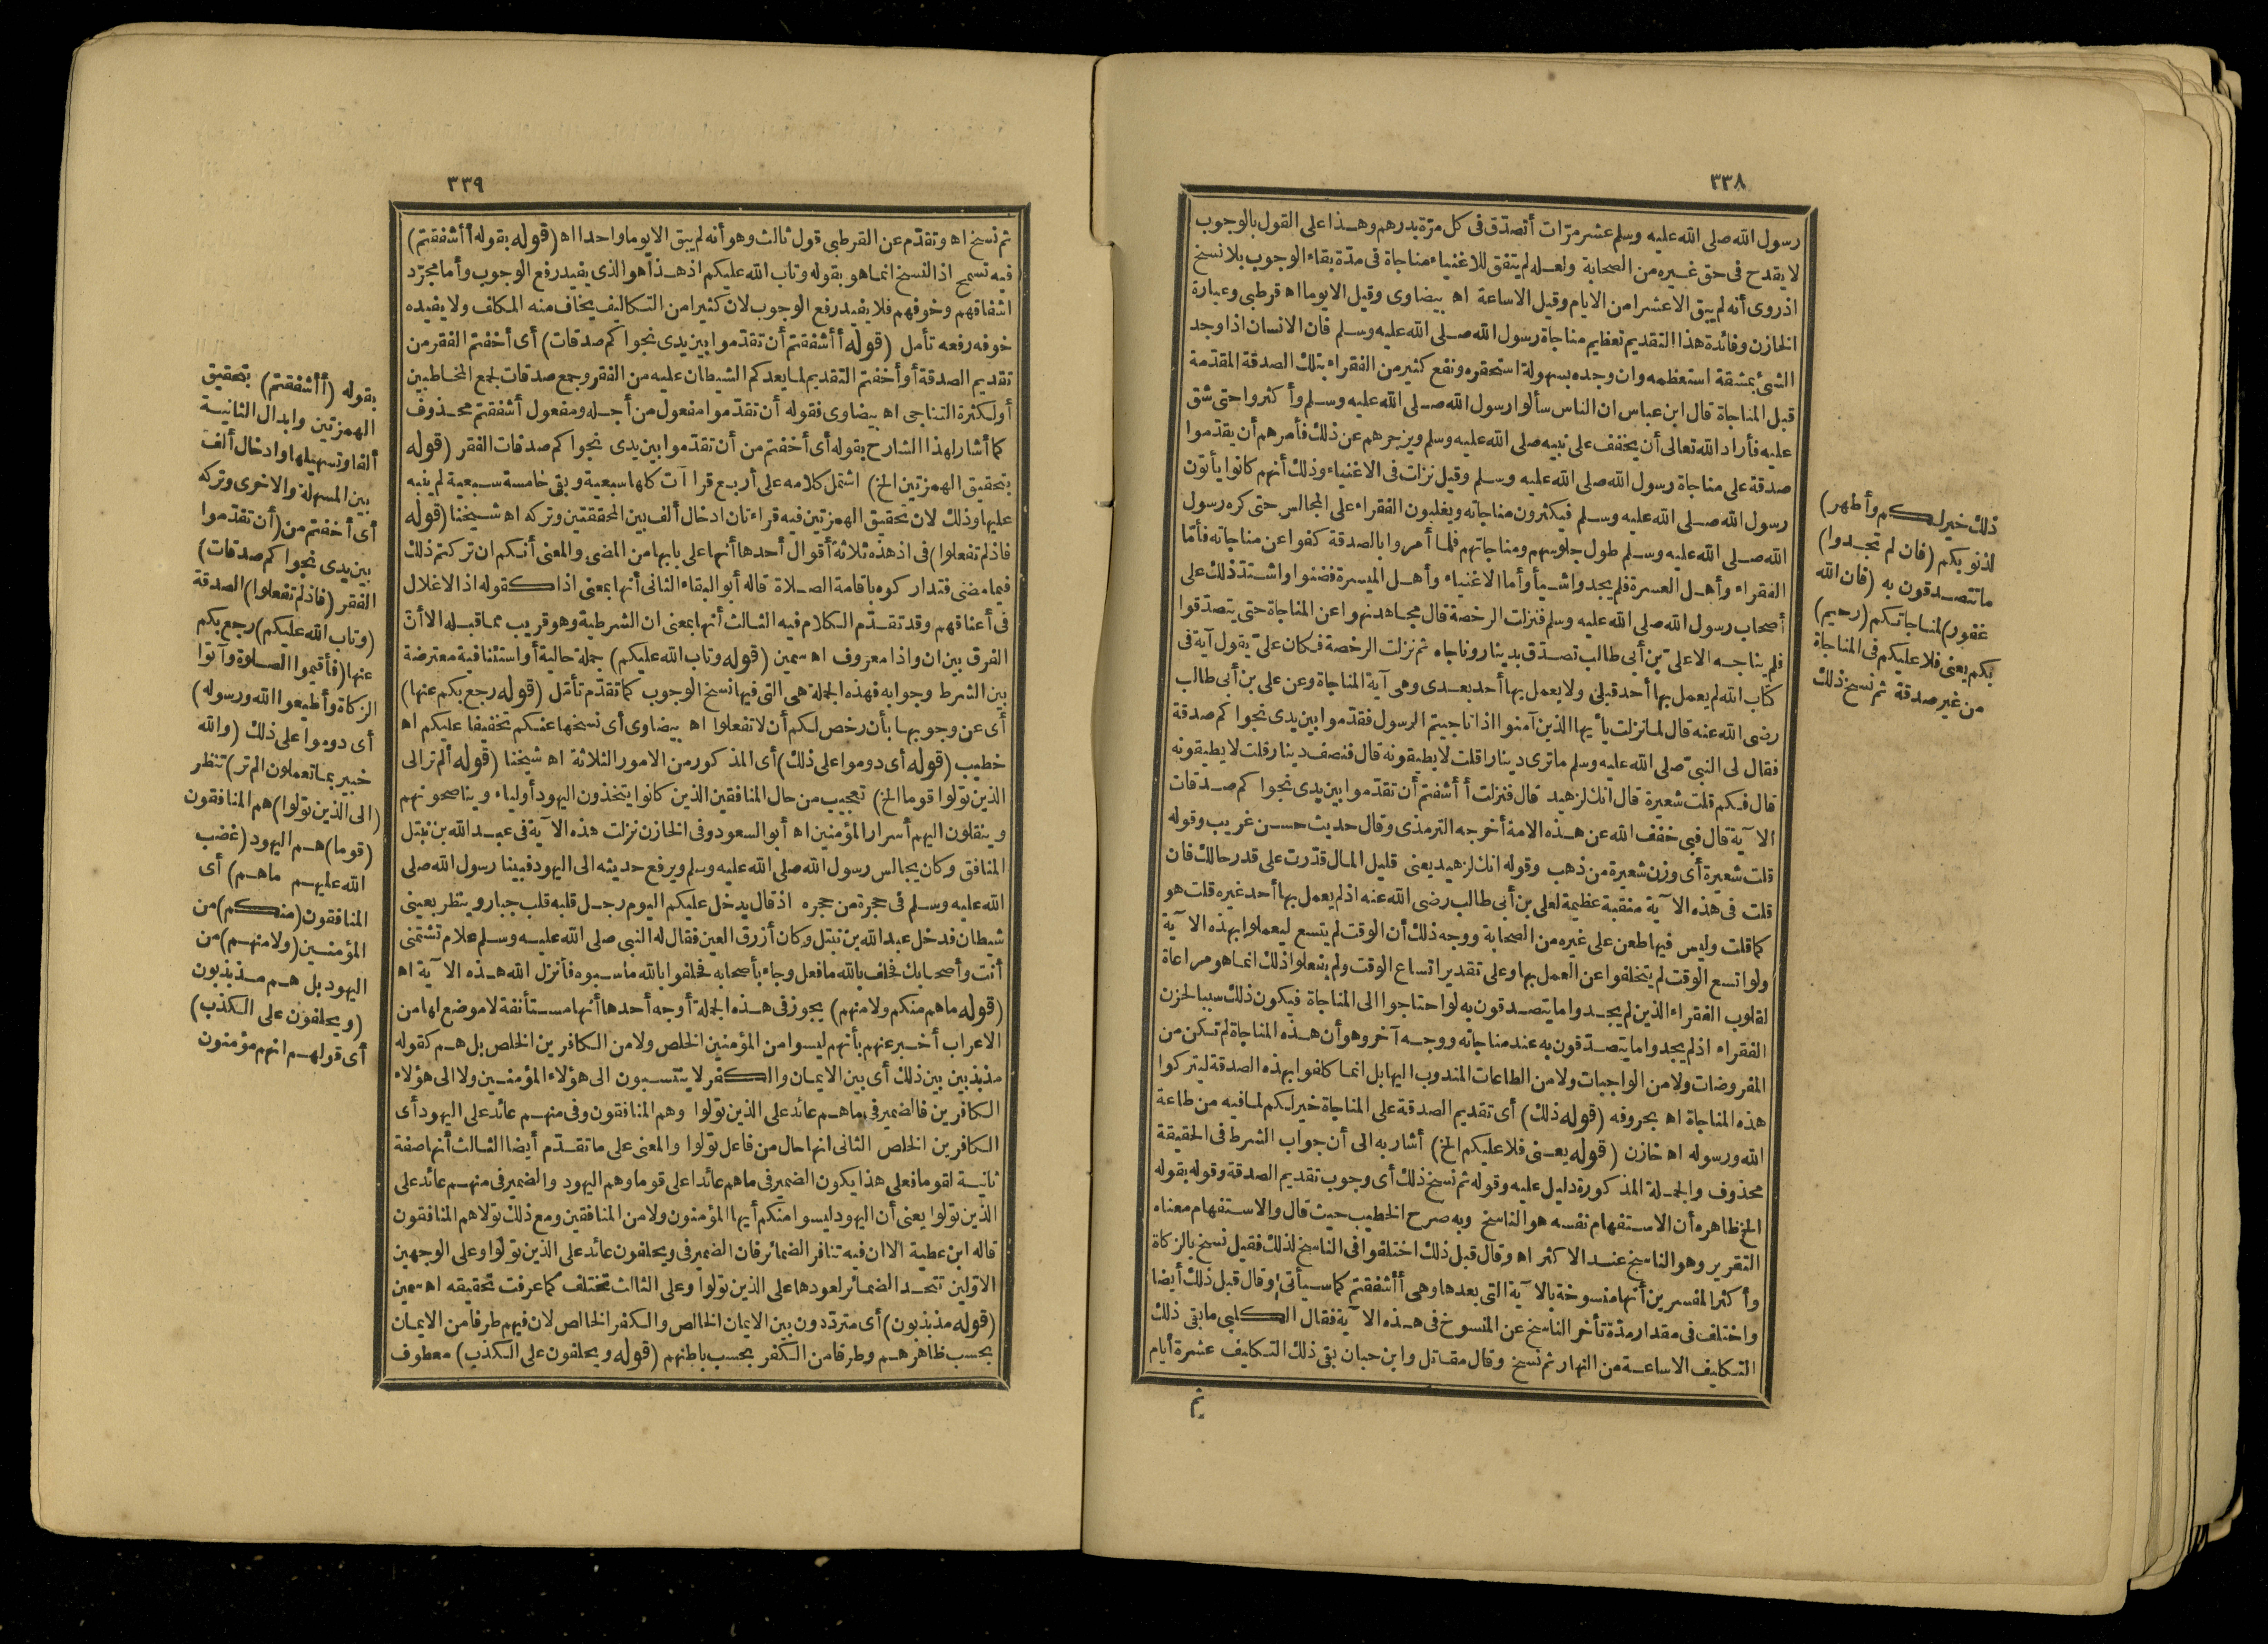 ٣٣٨
رسول الله صلى الله عليه وسلم عشر مرّات أتصدّق فى كل مرّة بدرهم وهذا على القول بالوجوب
لا يقدح فى حق غيره من الصحابة ولعله لم يتفق للاغنياء مناجاة فى مدّة بقاء الوجوب بلا نسخ
اذ روى أنه لم يبق الا عشرا من الايام وقيل الا ساعة اه بيضاوى وقيل الا يوما اه قرطبى وعبارة
الخازن وفائدة هذا التقديم تعظيم مناجاة رسول الله صلى الله عليه وسلم فان الانسان اذا وجد
الشئ بمشقة استعظمه وان وجده بسهولة استحقره ونفع كثير من الفقراء بتلك الصدقة المقدّمة
قبل المناجاة قال ابن عباس ان الناس سألوا رسول الله صلى الله عليه وسلم وأكثروا حتى شق
عليه فأراد الله تعالى أن يخفف على نبيه صلى الله عليه وسلم ويزجرهم عن ذلك فأمرهم أن يقدّموا
صدقة على مناجاة رسول الله صلى الله عليه وسلم وقيل نزلت فى الاغنياء وذلك أنهم كانوا يأتون
رسول الله صلى الله عليه وسلم فيكثرون مناجاته ويغلبون الفقراء على المجالس حتى كره رسول
الله صلى الله عليه وسلم طول جلوسهم ومناجاتهم فلما أمروا بالصدقة كفوا عن مناجاته فأمّا
الفقراء وأهل العسرة فلم يجدوا شيأ وأما الاغنياء وأهل الميسرة فضنوا واشتد ذلك على
أصحاب رسول الله صلى الله عليه وسلم فنزلت الرخصة قال مجاهد نهوا عن المناجاة حتى يتصدّقوا
فلم يناجه الا علىّ بن أبى طالب تصدّق بدينار وناجاه ثم نزلت الرخصة فكان علىّ يقول آية فى
كتاب الله لم يعمل بها أحد قبلى ولا يعمل بها أحد بعدى وهى آية المناجاة وعن على بن أبى طالب
رضى الله عنه قال لما نزلت يأيها الذين آمنوا اذا ناجيتم الرسول فقدّموا بين يدى نجواكم صدقة
فقال لى النبىّ صلى الله عليه وسلم ما ترى دينارا قلت لا يطيقونه قال فنصف دينار قلت لا يطيقونه
قال فكم قلت شعيرة قال انك لزهيد قال فنزلت أأشفقتم أن تقدّموا بين يدى نجواكم صدقات
الآية قال فبى خفف الله عن هذه الامة أخرجه الترمذى وقال حديث حسن غريب وقوله
قلت شعيرة أى وزن شعيرة من ذهب وقوله انك لزهيد يعنى قليل المال قدّرت على قدر حالك فان
قلت فى هذه الآية منقبة عظيمة لعلى بن أبى طالب رضى الله عنه اذ لم يعمل بها أحد غيره قلت هو
كما قلت وليس فيها طعن على غيره من الصحابة ووجه ذلك أن الوقت لم يتسع ليعملوا بهذه الآية
ولو اتسع الوقت لم يتخلفوا عن العمل بها وعلى تقدير اتساع الوقت ولم يفعلوا ذلك انما هو مراعاة
لقلوب الفقراء الذين لم يجدوا ما يتصدقون به لو احتاجوا الى المناجاة فيكون ذلك سببا لحزن
الفقراء اذ لم يجدوا ما يتصدّقون به عند مناجاته ووجه آخر وهو أن هذه المناجاة لم تكن من
المفروضات ولا من الواجبات ولا من الطاعات المندوب اليها بل انما كلفوا بهذه الصدقة ليتركوا
هذه المناجاة اه بحروفه (قوله ذلك) أى تقديم الصدقة على المناجاة خير لكم لما فيه من طاعة
الله ورسوله اه خازن (قوله يعنى فلا عليكم الخ) أشار به الى أن جواب الشرط فى الحقيقة
محذوف والجملة المذكورة دليل عليه وقوله ثم نسخ ذلك أى وجوب تقديم الصدقة وقوله بقوله
الخ ظاهره أن الاستفهام نفسه هو الناسخ وبه صرح الخطيب حيث قال والاستفهام معناه
التقرير وهو الناسخ عند الاكثر اه وقال قبل ذلك اختلفوا فى الناسخ لذلك فقيل نسخ بالزكاة
وأكثر المفسرين أنها منسوخة بالآية التى بعدها وهى أأشفقتم كما سيأتى وقال قبل ذلك أيضا
واختلف فى مقدار مدّة تأخر الناسخ عن المنسوخ فى هذه الآية فقال الكلبى ما بقى ذلك
التكليف الا ساعة من النهار ثم نسخ وقال مقاتل وابن حبان بقى ذلك التكليف عشرة أيام
ثم
ذلك خير لكم وأطهر)
لذنوبكم (فان لم تجدوا)
ما تتصدقون به (فان الله
غفور) لمناجاتكم (رحيم)
بكم يعنى فلا عليكم فى المناجاة
من غير صدقة ثم نسخ ذلك
٣٣٩
ثم نسخ اه وتقدّم عن القرطبى قول ثالث وهو أنه لم يبق الا يوما واحدا اه (قوله بقوله أأشفقتم)
فيه تسمح اذ النسخ انما هو بقوله وتاب الله عليكم اذ هذا هو الذى يفيد رفع الوجوب وأما مجرّد
اشفاقهم وخوفهم فلا يفيد رفع الوجوب لان كثيرا من التكاليف يخاف منه المكلف ولا يفيده
خوفه رفعه تأمل (قوله أأشفقتم أن تقدّموا بين يدى نجواكم صدقات) أى أخفتم الفقر من
تقديم الصدقة أو أخفتم التقديم لما يعدكم الشيطان عليه من الفقر وجمع صدقات لجمع المخاطبين
أو لكثرة التناجى اه بيضاوى فقوله أن تقدّموا مفعول من أجله ومفعول أشفقتم محذوف
كما أشار لهذا الشارح بقوله أى أخفتم من أن تقدّموا بين يدى نجواكم صدقات الفقر (قوله
بتحقيق الهمزتين الخ) اشتمل كلامه على أربع قراآت كلها سبعية وبقى خامسة سبعية لم ينبه
عليها وذلك لان تحقيق الهمزتين فيه قراءتان ادخال ألف بين المحققتين وتركه اه شيخنا (قوله
فاذ لم تفعلوا) فى اذ هذه ثلاثة أقوال أحدها أنها على بابها من المضى والمعنى أنكم ان تركتم ذلك
فيما مضى فتداركوه باقامة الصلاة قاله أبو البقاء الثانى أنها بمعنى اذا كقوله اذ الاغلال
فى أعناقهم وقد تقدّم الكلام فيه الثالث أنها بمعنى ان الشرطية وهو قريب مما قبله الا أنّ
الفرق بين ان واذا معروف اه سمين (قوله وتاب الله عليكم) جملة حالية أو استئنافية معترضة
بين الشرط وجوابه فهذه الجملة هى التى فيها نسخ الوجوب كما تقدّم تأمّل (قوله رجع بكم عنها)
أى عن وجوبها بأن رخص لكم أن لا تفعلوا اه بيضاوى أى نسخها عنكم تخفيفا عليكم اه
خطيب (قوله أى دوموا على ذلك) أى المذكور من الامور الثلاثة اه شيخنا (قوله ألم تر الى
الذين تولوا قوما الخ) تعجيب من حال المنافقين الذين كانوا يتخذون اليهود أولياء ويناصحونهم
وينقلون اليهم أسرار المؤمنين اه أبو السعود وفى الخازن نزلت هذه الآية فى عبد الله بن نبتل
المنافق وكان يجالس رسول الله صلى الله عليه وسلم ويرفع حديثه الى اليهود فبينا رسول الله صلى
الله عليه وسلم فى حجرة من حجره اذ قال يدخل عليكم اليوم رجل قلبه قلب جبار وينظر بعينى
شيطان فدخل عبد الله بن نبتل وكان أزرق العين فقال له النبى صلى الله عليه وسلم علام تشتمنى
أنت وأصحابك فحلف بالله ما فعل وجاء بأصحابه فحلفوا بالله ما سبوه فأنزل الله هذه الآية اه
(قوله ما هم منكم ولا منهم) يجوز فى هذه الجملة أوجه أحدها أنها مستأنفة لا موضع لها من
الاعراب أخبر عنهم بأنهم ليسوا من المؤمنين الخلص ولا من الكافرين الخلص بل هم كقوله
مذبذبين بين ذلك أى بين الايمان والكفر لا ينتسبون الى هؤلاء المؤمنين ولا الى هؤلاء
الكافرين فالضمير فى ما هم عائد على الذين تولوا وهم المنافقون وفى منهم عائد على اليهود أى
الكافرين الخلص الثانى انها حال من فاعل تولوا والمعنى على ما تقدّم أيضا الثالث أنها صفة
ثانية لقوما فعلى هذا يكون الضمير فى ما هم عائدا على قوما وهم اليهود والضمير فى منهم عائد على
الذين تولوا يعنى أن اليهود ليسوا منكم أيها المؤمنون ولا من المنافقين ومع ذلك تولاهم المنافقون
قاله ابن عطية الا ان فيه تنافر الضمائر فان الضمير فى ويحلفون عائد على الذين تولوا وعلى الوجهين
الاوّلين تتحد الضمائر لعودها على الذين تولوا وعلى الثالث تختلف كما عرفت تحقيقه اه سمين
(قوله مذبذبون) أى متردّدون بين الايمان الخالص والكفر الخالص لان فيهم طرفا من الايمان
بحسب ظاهرهم وطرفا من الكفر بحسب باطنهم (قوله ويحلفون على الكذب) معطوف
بقوله (أأشفقتم) بتحقيق
الهمزتين وابدال الثانية
ألفا وتسهيلها وادخال ألف
بين المسهلة والاخرى وتركه
أى أخفتم من (أن تقدّموا
بين يدى نجواكم صدقات)
الفقر (فاذ لم تفعلوا) الصدقة
(وتاب الله عليكم) رجع بكم
عنها (فأقيموا الصلوة وآتوا
الزكاة وأطيعوا الله ورسوله)
أى دوموا على ذلك (والله
خبير بما تعملون الم تر) تنظر
(الى الذين تولوا) هم المنافقون
(قوما) هم اليهود (غضب
الله عليهم ما هم) أى
المنافقون (منكم) من
المؤمنين (ولا منهم) من
اليهود بل هم مذبذبون
(ويحلفون على الكذب)
أى قولهم انهم مؤمنون